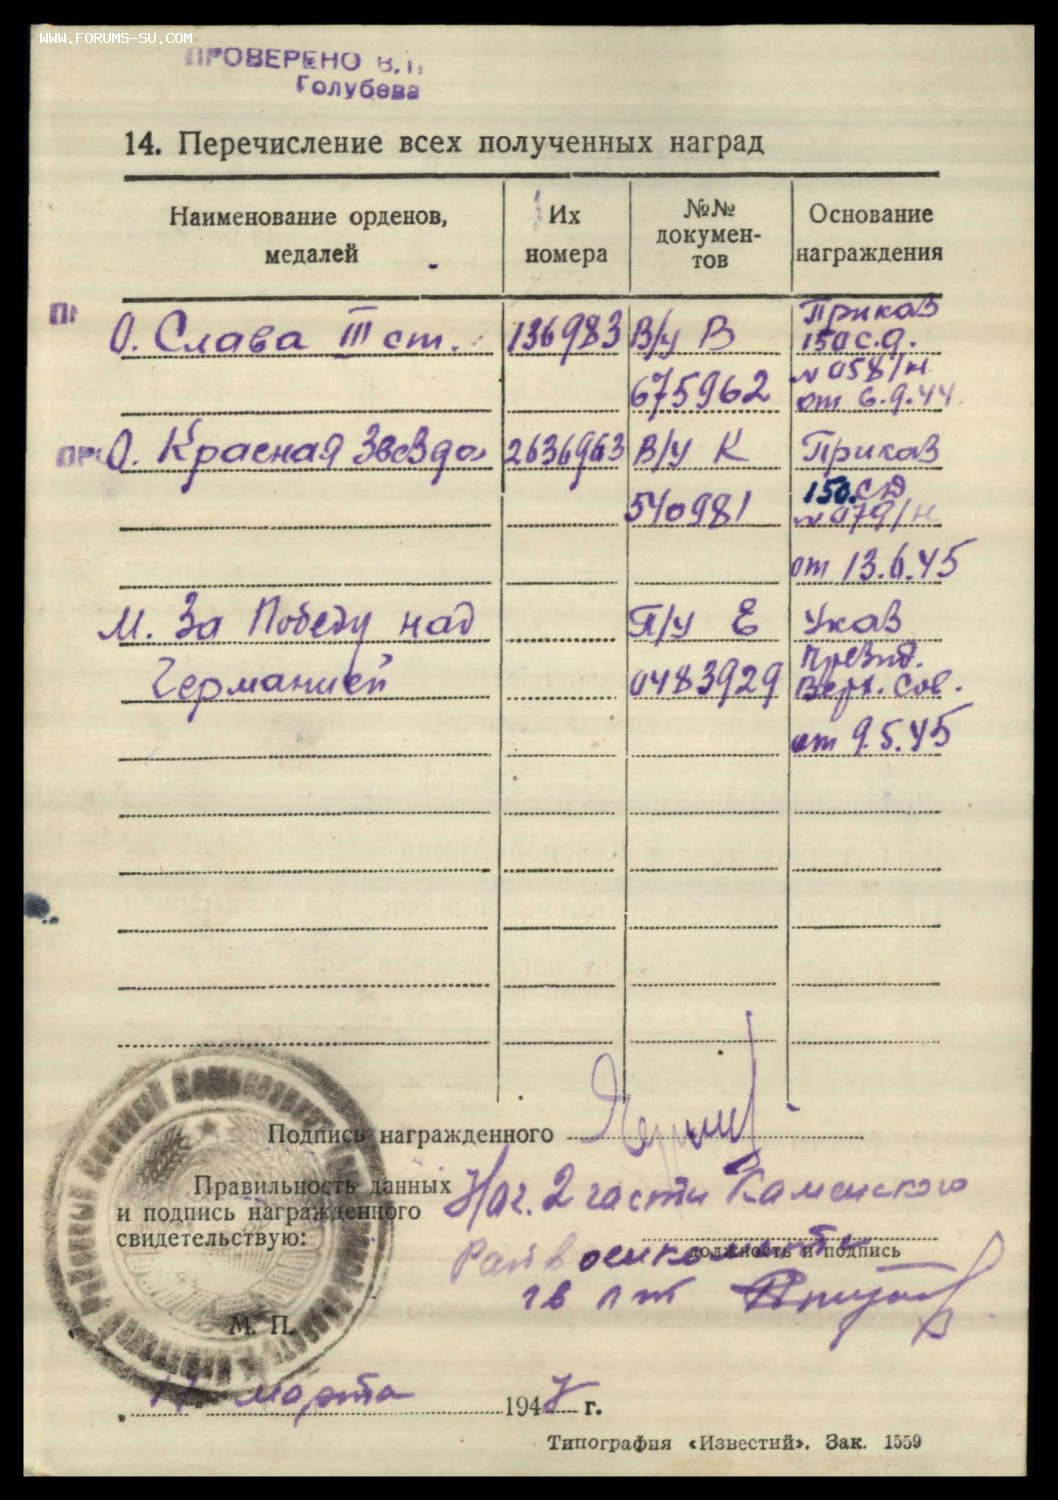 WWW.FORUMS-SU.COM
ПРОВЕРЕНО В.П.
Голубева
14. Перечисление всех полученных наград
Наименование орденов, медалей
Их номера
№№ документов
Основание награждения
О. Слава III ст. 136983 В/у В Приказ
150 с.д.
675962 № 058/н
от 6.9.44
О. Красная Звезда 2636963 В/у К Приказ
150 СД
540981 № 079/н
от 13.6.45
М. За Победу над П/у Е Указ
Презид.
Германией 0483929 Верх. Сов.
от 9.5.45
Подпись награжденного
Правильность данных
и подпись награжденного
свидетельствую:
Нач. 2 части Каменского
Райвоенкомата
должность и подпись
гв л-т
М. П.
марта 194 г.
Типография «Известий». Зак. 1559